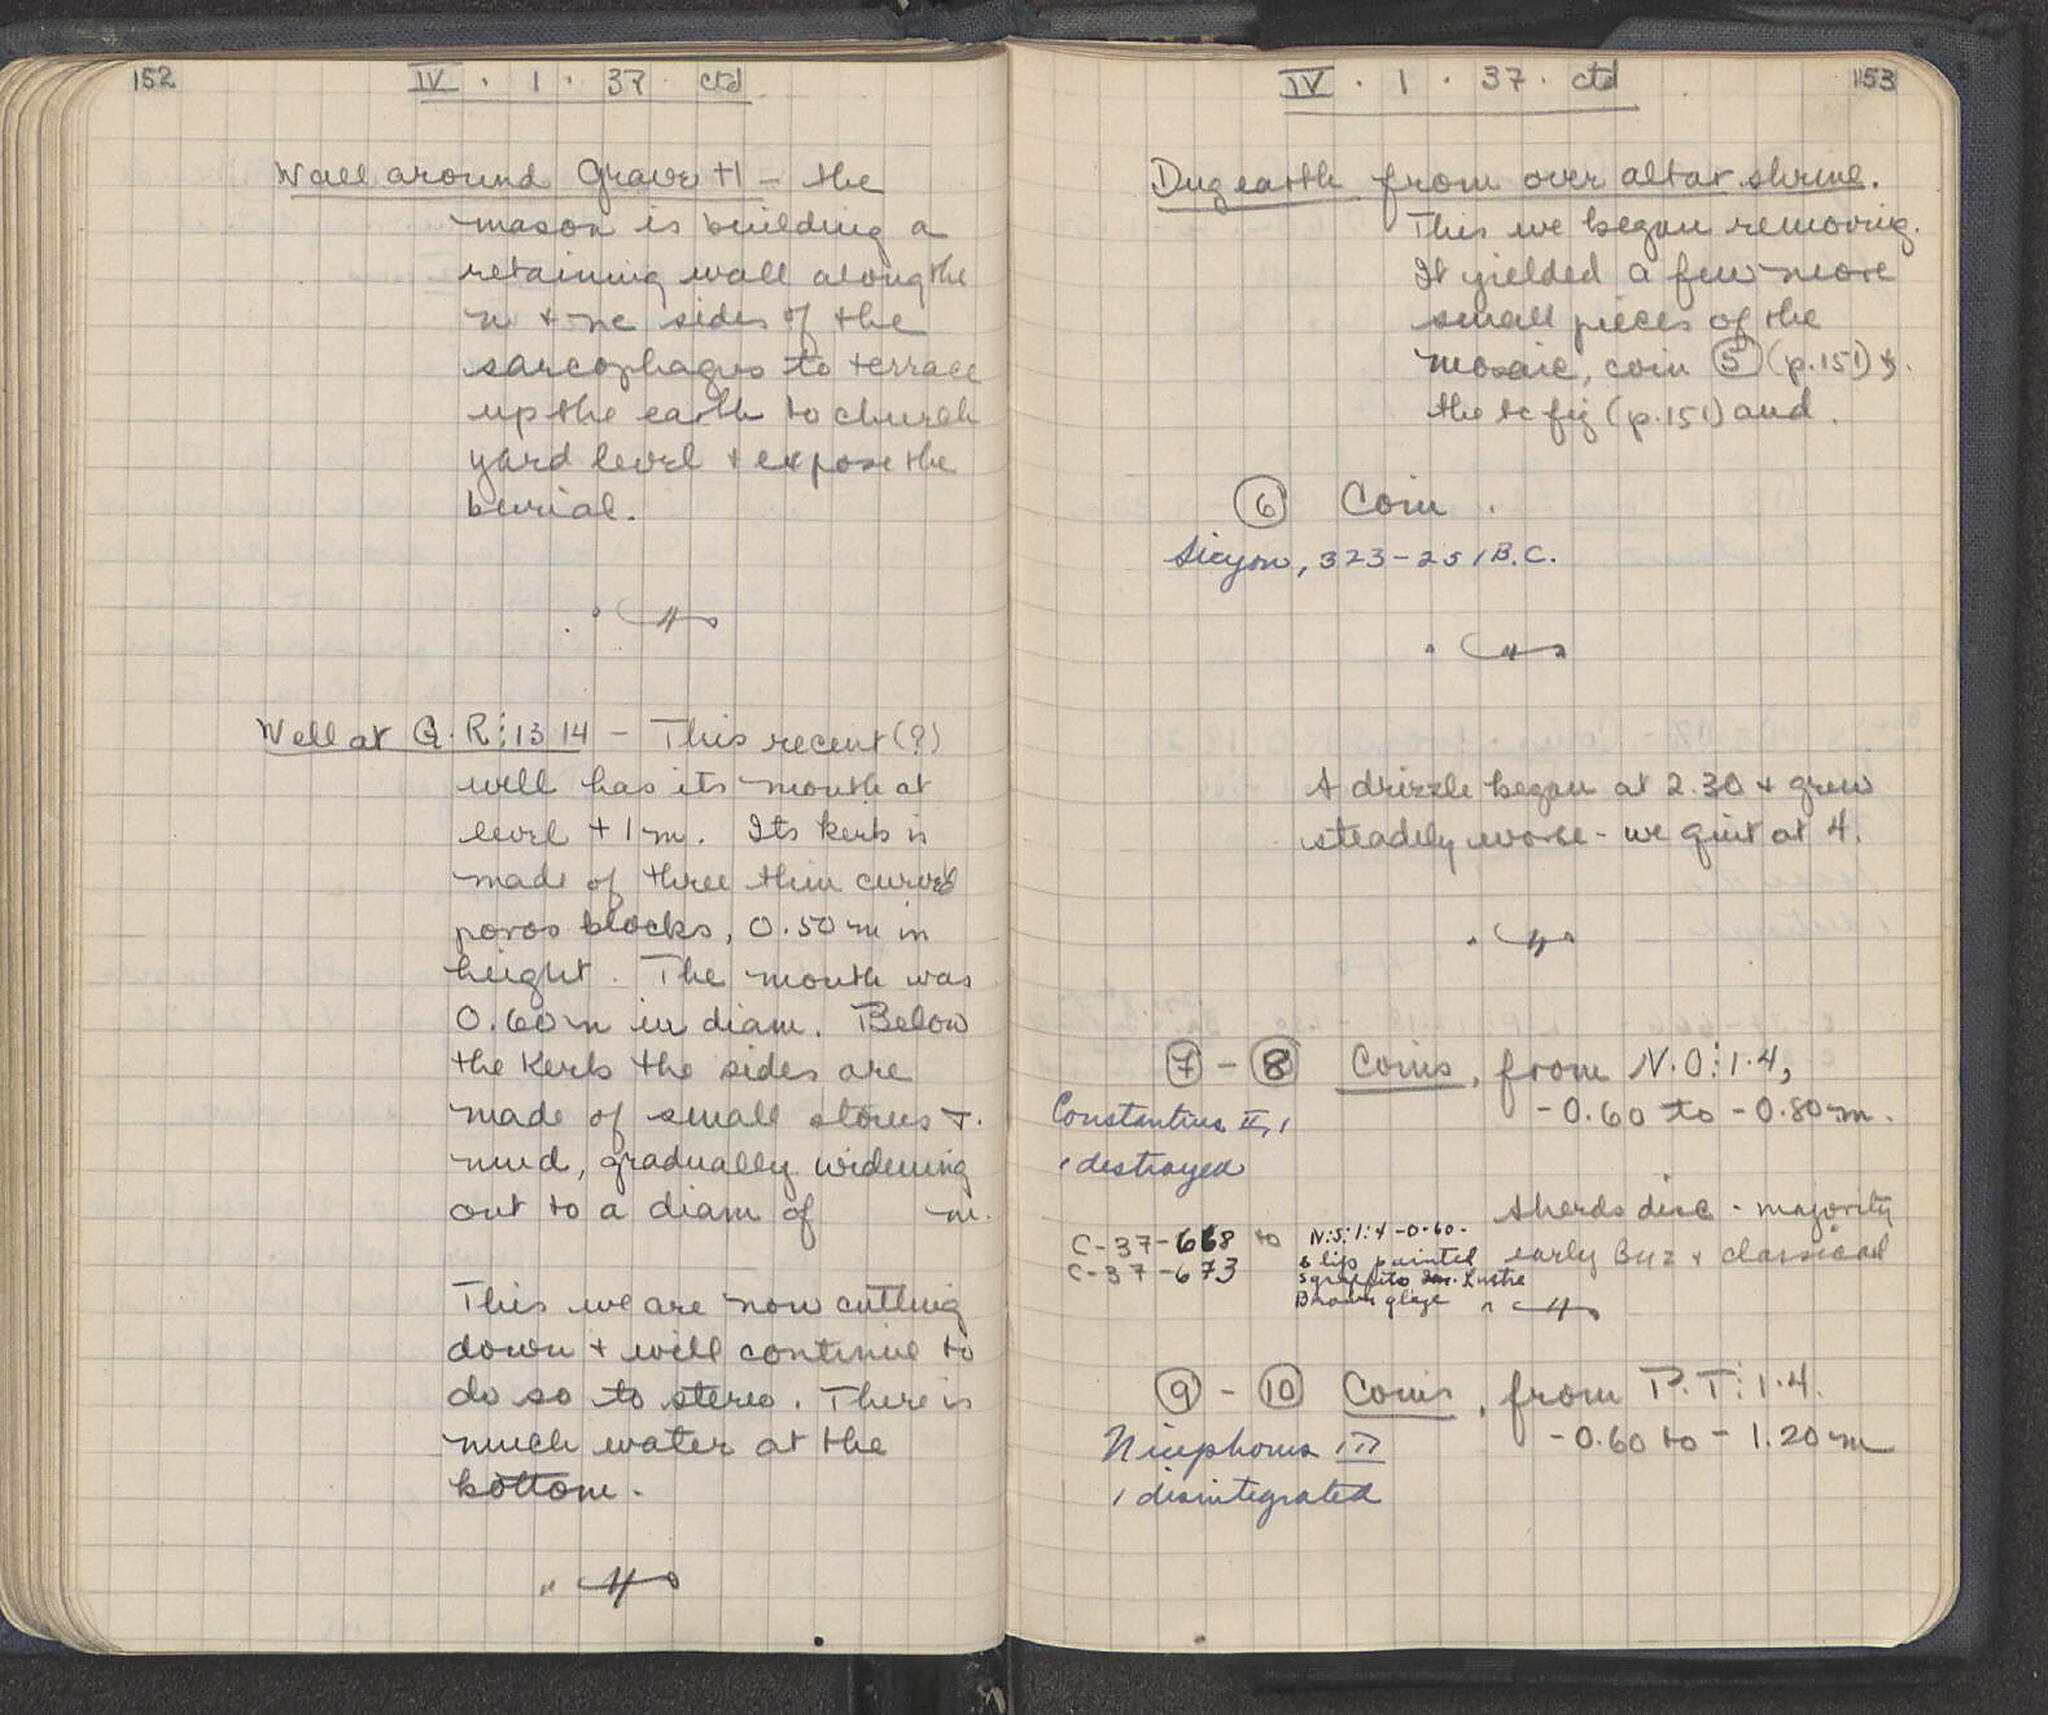 152
IV . 1 . 37 ctd
Wall around Grave +1 - the
mason is building a
retaining wall along the
n + ne sides of the
sarcophagus to terrace
up the earth to church
yard level + expose the
burial.
Well at Q.R:13 14 - This recent (?)
well has its mouth at
level + 1 m. Its kerb is
made of three thin curved
poros blocks, 0.50 m in
height. The mouth was
0.60 m in diam. Below
the kerb the sides are
made of small stones +
mud, gradually widening
out to a diam of m.
This we are now cutting
down + will continue to
do so to stereo. There is
much water at the
bottom.
153
IV . 1 . 37. ctd
Dug earth from over altar shrine.
This we began removing.
It yielded a few more
small pieces of the
mosaic, coin 5 (p.151) +
the tc fig (p.151) and
6 Coin
Sicyon, 323-251 B.C.
A drizzle began at 2.30 + grew
steadily worse - we quit at 4.
7 - 8 Coins, from N.O:1.4,
-0.60 to -0.80 m.
Constantius II, 1
1 destroyed
Sherds disc - majority
early Byz + classical
C-37-668 to
C-37-673
N:5:1:4 -0.60-
slip painted
sgraffito Lustre
Brown glaze
9 - 10 Coins, from P.T:1.4.
-0.60 to -1.20 m
Nicephorus III
1 disintegrated